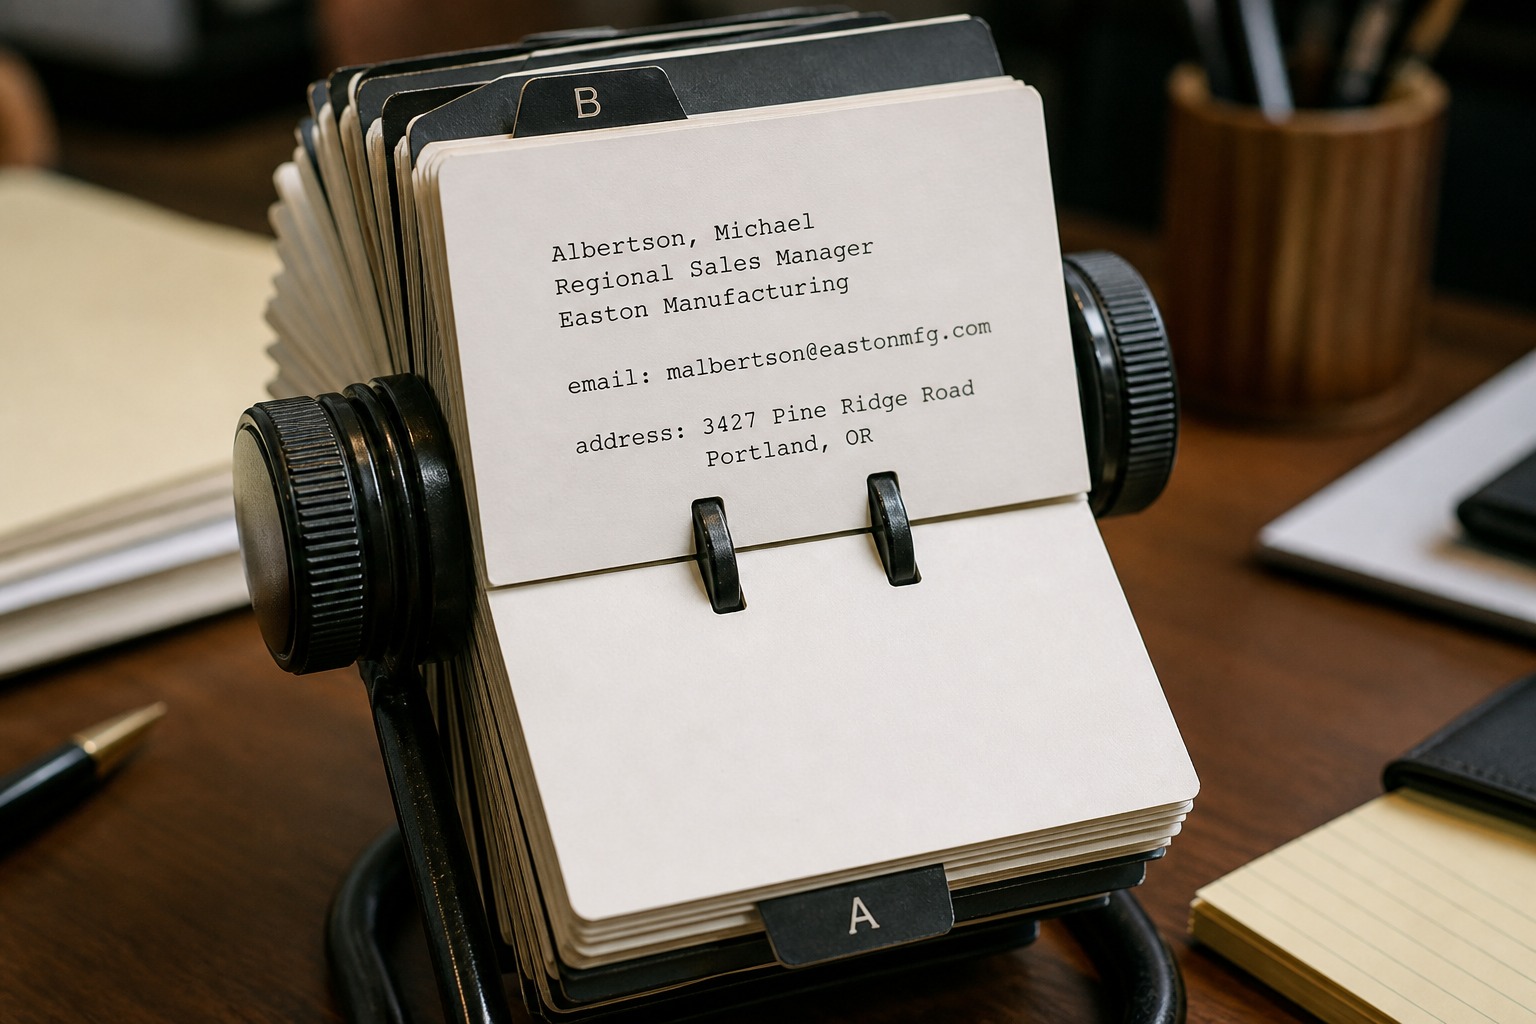 B
Albertson, Michael
Regional Sales Manager
Easton Manufacturing
email: malbertson@eastonmfg.com
address: 3427 Pine Ridge Road
Portland, OR
A